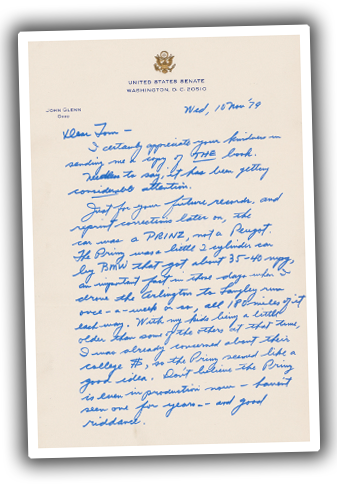 UNITED STATES SENATE
WASHINGTON, D.C. 20510
JOHN GLENN
OHIO
Wed, 15 Nov '79
Dear Tom –
I certainly appreciate your kindness in
sending me a copy of THE book.
Needless to say, it has been getting
considerable attention.
Just for your future records, and
reprint corrections later on, the
car was a PRINZ, not a Peugot.
The Prinz was a little 2 cylinder car
by BMW that got about 35-40 mpg,
an important fact in those days when I
drove the Arlington to Langley run
once-a-week or so, all 180 miles of it
each way. With my kids being a little
older than some of the others at that time,
I was already concerned about their
college #, so the Prinz seemed like a
good idea. Don't believe the Prinz
is even in production now – haven't
seen one for years – and good
riddance.